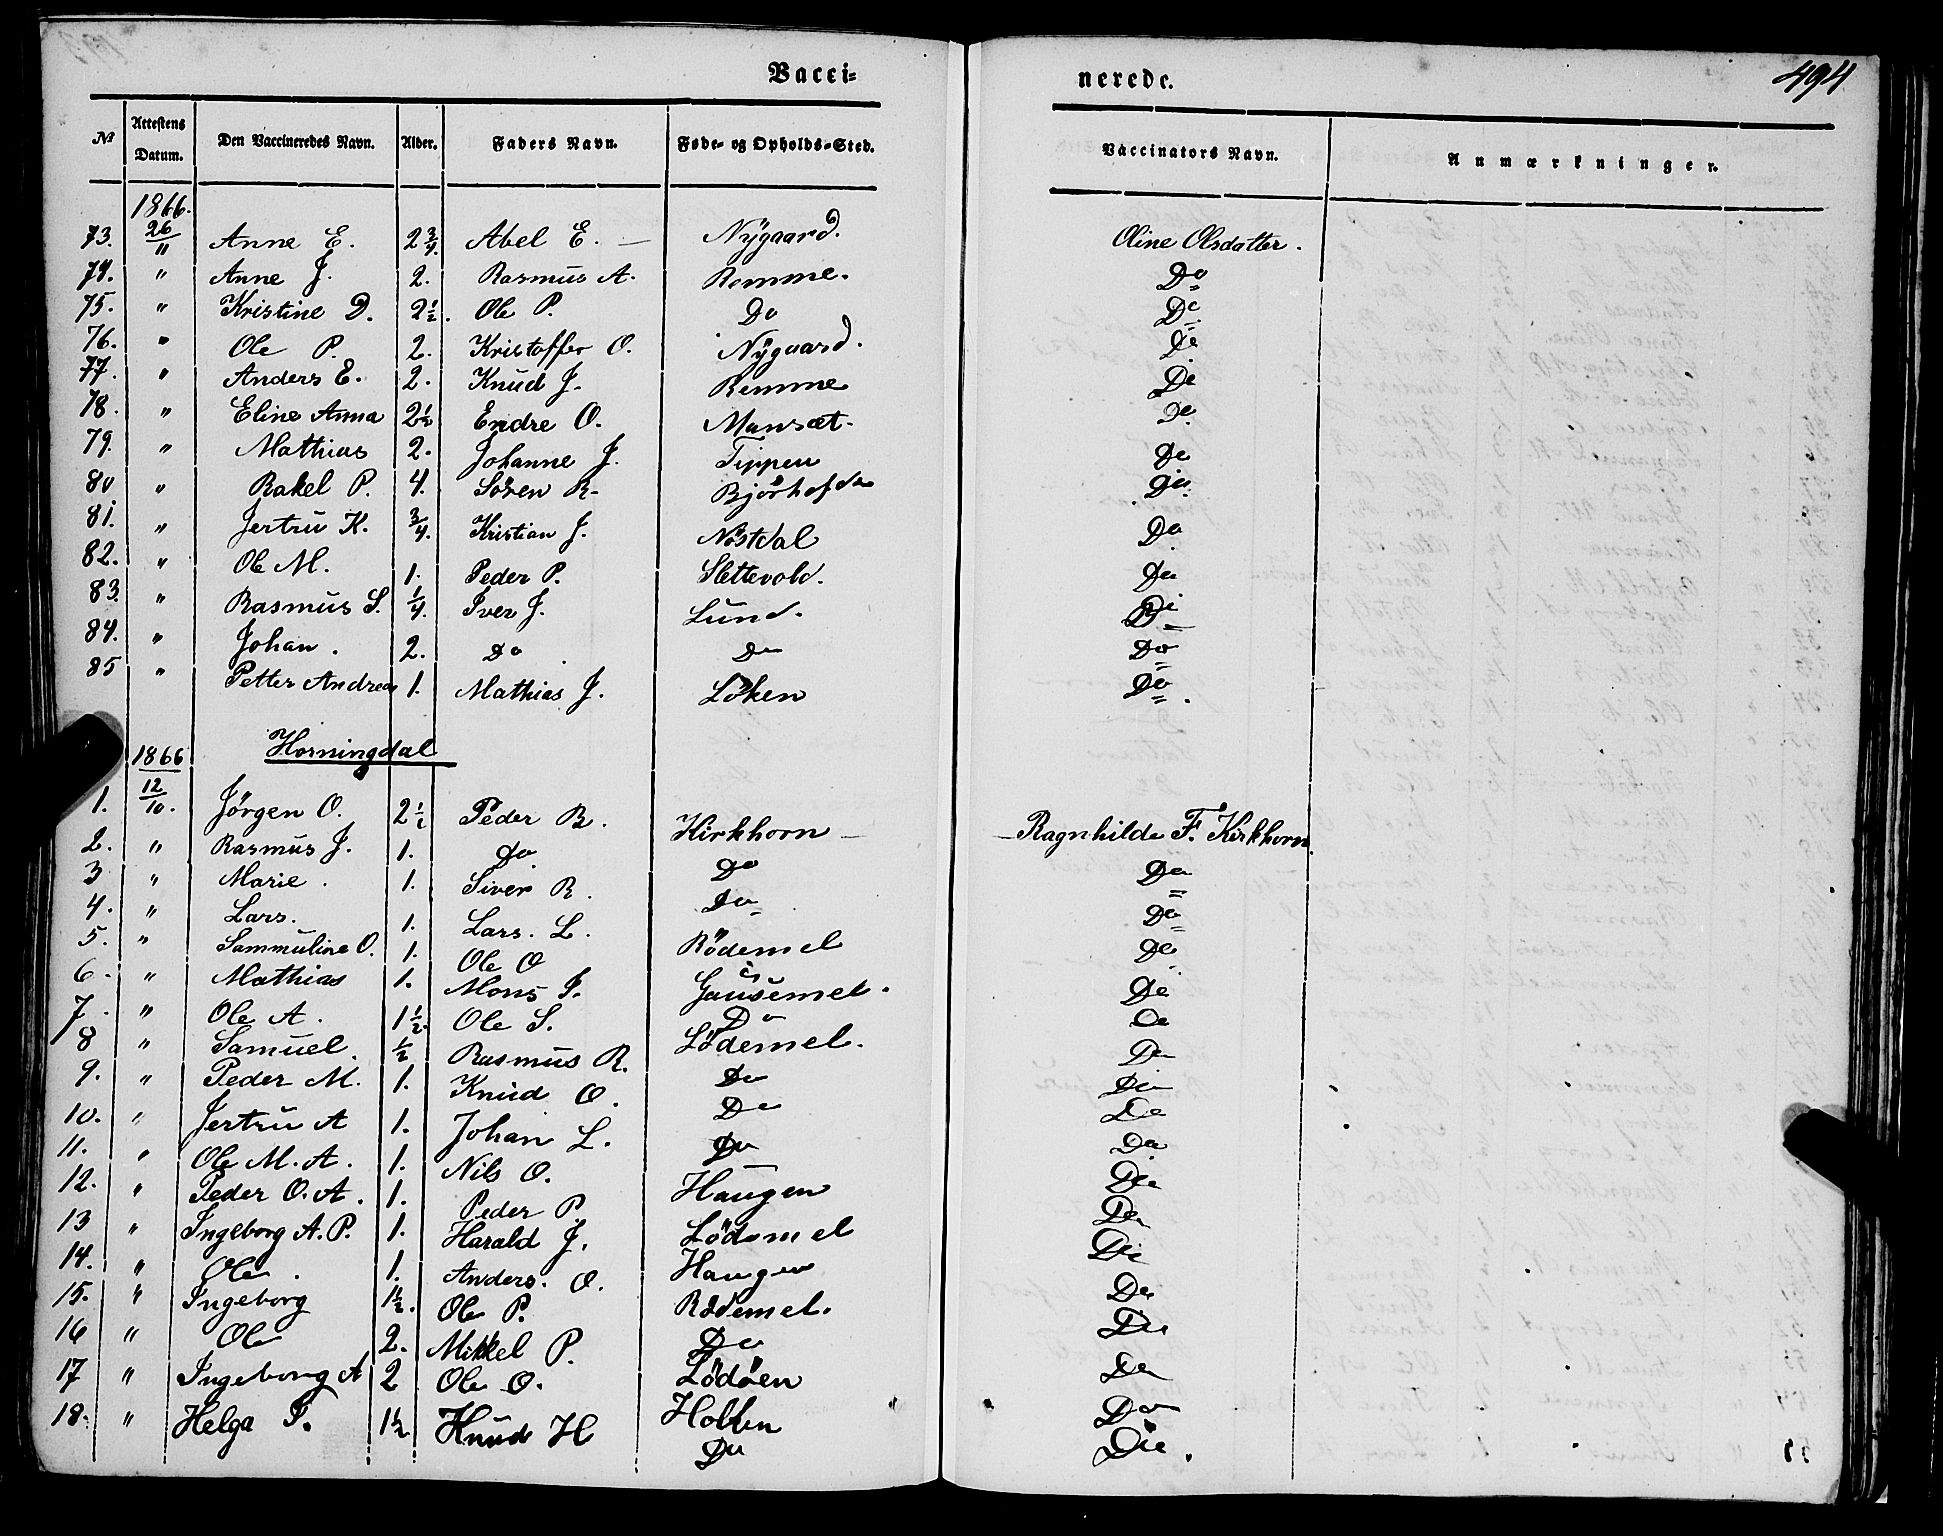 Vacci=
nerede.
494
No | Attestens Datum. | Den Vaccineredes Navn. | Alder. | Faders Navn. | Føde- og Opholds-Sted. | Vaccinators Navn. | Anmærkninger.
1866.
73. | 26/11 | Anne E. | 2 3/4. | Abel E. — | Nÿgaard. | Oline Olsdatter.
74. | " | Anne J. | 2. | Rasmus A. | Remme. | Do
75. | " | Kristine D. | 2 1/2. | Ole P. | Do | Do
76. | " | Ole P. | 2. | Kristoffer O. | Nÿgaard. | Do
77. | " | Anders E. | 2. | Knud J. | Remme | Do
78. | " | Eline Anna | 2 1/2 | Endre O. | Mansæt. | Do
79. | " | Mathias | 2. | Johanne J. | Tippen | Do
80 | " | Rakel P. | 4. | Sören R. | | Do
81. | " | Jertru K. | 3/4. | Kristian J. | Nöstdal | Do
82. | " | Ole M. | 1. | Peder P. | Slettevold. | Do
83. | " | Rasmus S. | 1/4. | Iver J. | Lund. | Do
84. | " | Johan. | 2. | Do | Do | Do
85 | " | Petter Andreas | 1. | Mathias J. | Löken | Do
1866 | Horningdal
1. | 12/10. | Jörgen O. | 2 1/2 | Peder R. | Kirkhorn — | Ragnhilde F. Kirkhorn.
2. | " | Rasmus J. | 1. | Do | Do | Do
3 | " | Marie. | 1. | Siver R. | Do | Do
4. | " | Lars. | 1. | Lars. L. | | Do
5. | " | Sammuline O. | 1. | Ole O | Rödemel | Do
6. | " | Mathias | 1. | Mons I. | Gausemel. | Do
7. | " | Ole A. | 1 1/2. | Ole S. | Do | Do
8 | " | Samuel. | 1/2 | Rasmus R. | Lödemel. | Do
9. | " | Peder M. | 1. | Knud O. | Do | Do
10. | " | Jertru A | 1. | Johan L. | Do | Do
11. | " | Ole M. A. | 1. | Nils O. | Do | Do
12. | " | Peder O. A. | 1. | Peder P. | Haugen | Do
13 | " | Ingeborg A. P. | 1. | Harald J. | Lödemel | Do
14. | " | Ole. | 1. | Anders. O. | Haugen | Do
15. | " | Ingeborg | 1 1/2. | Ole P. | Rödemel. | Do
16 | " | Ole | 2. | Mikkel P. | Do | Do
17 | " | Ingeborg A | 2 | Ole O. | Lödöen | Do
18. | " | Helga P. | 1 1/2 | Knud H | Do | Do
Do.